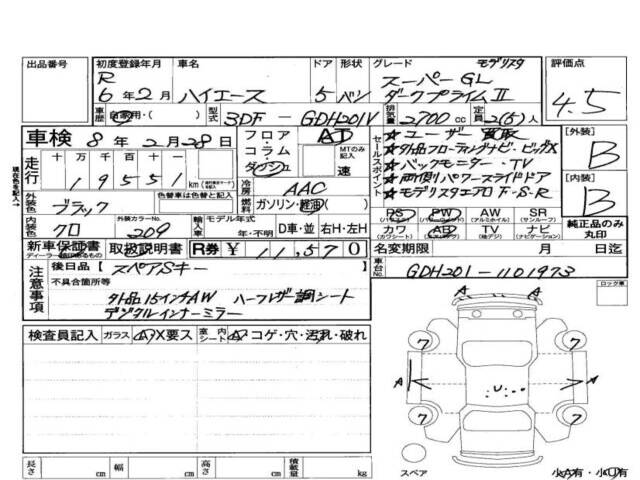 出品番号
初度登録年月
R 6 年 2 月
車名
ハイエース
ドア
5
形状
バン
グレード
モデリスタ
スーパーGL
ダークプライムII
評価点
4.5
車歴
自家用・( )
型式
3DF - GDH201V
排気量
2700 cc
定員
2(5)人
車検 8 年 2 月 28 日
フロア・コラム・ダッシュ
AT
MTのみ記入
速
走行
十万 万 千 百 十 一
1 9 5 5 1 km
冷房
AAC
外装色
ブラック
色替車は色替と記入
燃料
ガソリン・軽油( )
内装色
クロ
外装カラーNo.
209
輸入車
モデル年式
年・不明
D車・並
右H・左H
セールスポイント
★ユーザー買取
★外品フローティングナビ・ビッグX
★バックモニター・TV
★両側パワースライドドア
★モデリスタエアロF・S・R
[外装]
B
[内装]
B
PS PW AW SR
(アルミホイル) (サンルーフ)
カワ AB TV ナビ
(カワシート) (エアB) (地デジ) (ナビゲーション)
純正品のみ丸印
新車保証書
ディーラー
取扱説明書
R券 ¥ 11,570
名変期限 月 日迄
車台No.
GDH201-1101973
注意事項
後日品【 スペアSキー 】
不具合箇所等
外品15インチAW ハーフレザー調シート
デジタルインナーミラー
ロック車
検査員記入
ガラス
A・X要ス
室内シート
A・コゲ・穴・汚れ・破れ
A A
7 7
A A
7 7
長さ cm
幅 cm
高さ cm
積載量 kg
スペア
小A有・小U有